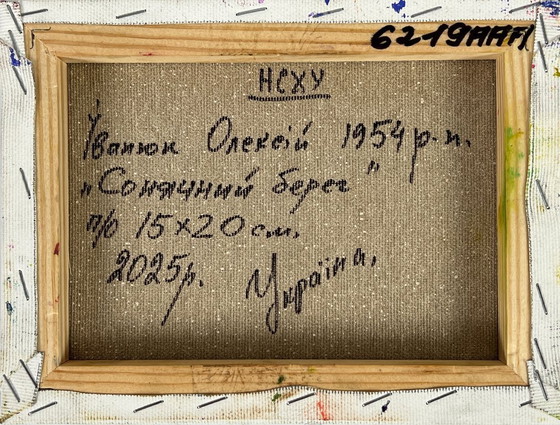 6219ННП
НСХУ
Іванюк Олексій 1954 р.н.
„Сонячний берег"
п/о 15х20 см.
2025р. Україна.